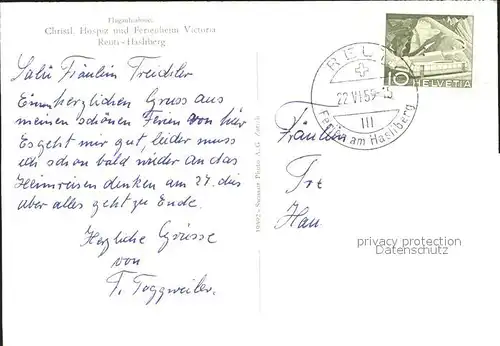 Flugaufnahme.
Christl. Hospiz und Ferienheim Victoria
Reuti-Hasliberg
Salü Fräulein Treichler
Einen herzlichen Gruss aus
meinen schönen Ferien von hier
Es geht mir gut, leider muss
ich schon bald wieder an das
Heimreisen denken am 27. dies
aber alles geht zu Ende.
Herzliche Grüsse
von
F. Toggweiler.
Photo A.G. Zürich
22 VI 59-15
III
Ferien am Hasliberg
10 HELVETIA
Fräulein
Tre
Hau
privacy protection
Datenschutz